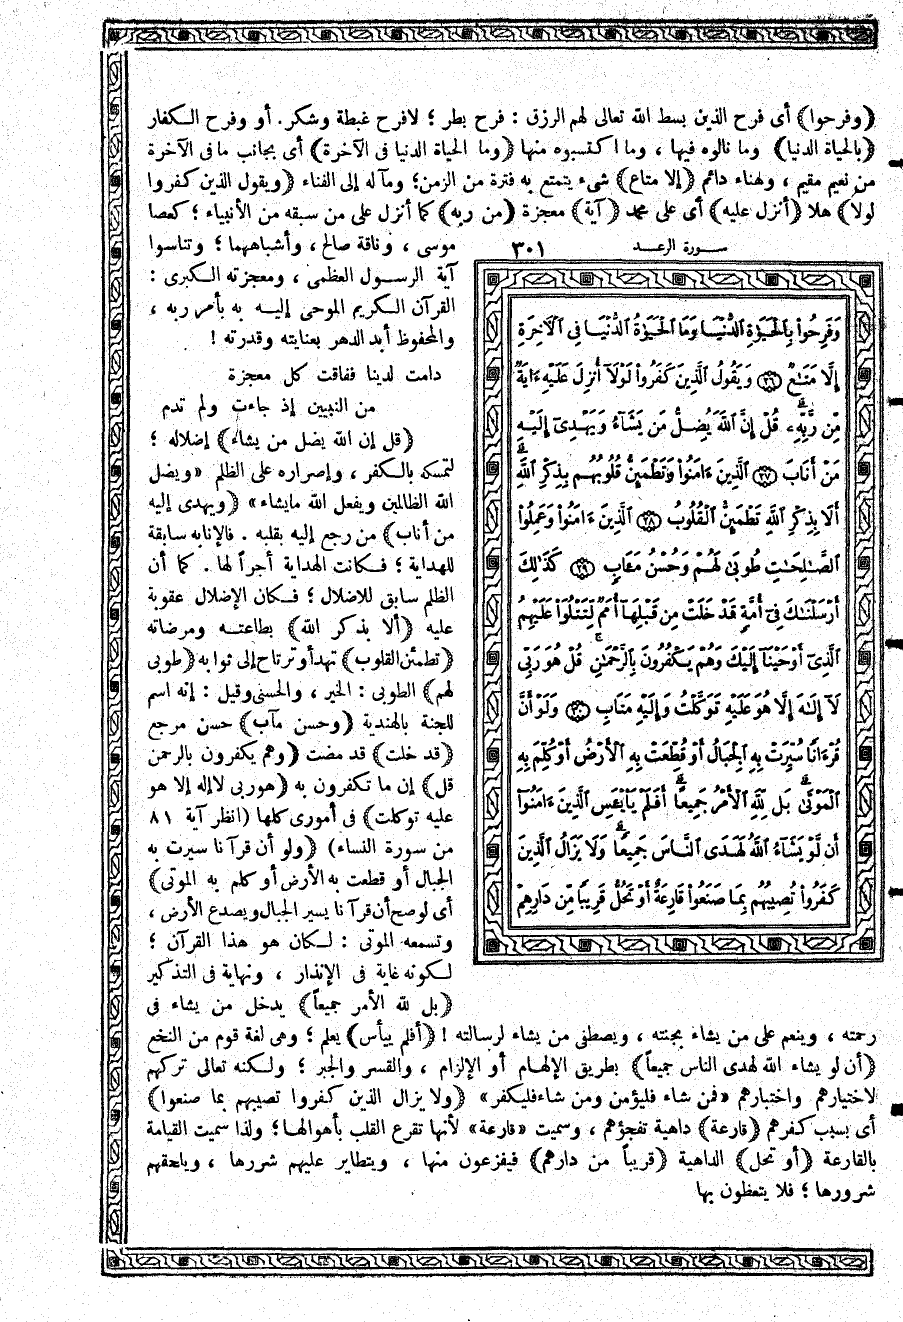 (وفرحوا) أى فرح الذين بسط الله تعالى لهم الرزق : فرح بطر ؛ لافرح غبطة وشكر. أو وفرح الكفار
(بالحياة الدنيا) وما نالوه فيها ، وما اكتسبوه منها (وما الحياة الدنيا فى الآخرة) أى بجانب ما فى الآخرة
من نعيم مقيم ، ولهناء دائم (إلا متاع) شىء يتمتع به فترة من الزمن؛ ومآله إلى الفناء (ويقول الذين كفروا
لولا) هلا (أنزل عليه) أى على محمد (آية) معجزة (من ربه) كما أنزل على من سبقه من الأنبياء ؛ كعصا
موسى ، وناقة صالح ، وأشباههما ؛ وتناسوا
آية الرسول العظمى ، ومعجزته الكبرى :
القرآن الكريم الموحى إليه به بأمر ربه ،
والمحفوظ أبد الدهر بعنايته وقدرته !
دامت لدينا ففاقت كل معجزة
من النبيين إذ جاءت ولم تدم
(قل إن الله يضل من يشاء) إضلاله ؛
لتمسكه بالكفر ، وإصراره على الظلم «ويضل
الله الظالمين ويفعل الله مايشاء» (ويهدى إليه
من أناب) من رجع إليه بقلبه . فالإنابه سابقة
للهداية ؛ فكانت الهداية أجراً لها . كما أن
الظلم سابق للاضلال ؛ فكان الإضلال عقوبة
عليه (ألا بذكر الله) بطاعته ومرضاته
(تطمئن القلوب) تهدأ وترتاح إلى ثوابه (طوبى
لهم) الطوبى : الخير ، والحسنى وقيل : إنه اسم
للجنة بالهندية (وحسن مآب) حسن مرجع
(قد خلت) قد مضت (وهم يكفرون بالرحمن
قل) إن ما تكفرون به (هو ربى لاإله إلا هو
عليه توكلت) فى أمورى كلها (انظر آية ٨١
من سورة النساء) (ولو أن قرآنا سيرت به
الجبال أو قطعت به الأرض أو كلم به الموتى)
أى لوصح أن قرآنا يسير الجبال ويصدع الأرض ،
وتسمعه الموتى : لكان هو هذا القرآن ؛
لكونه غاية فى الإنذار ، ونهاية فى التذكير
(بل لله الأمر جميعاً) يدخل من يشاء فى
سورة الرعد ٣٠١
وَفَرِحُوا۟ بِٱلْحَيَوٰةِ ٱلدُّنْيَا وَمَا ٱلْحَيَوٰةُ ٱلدُّنْيَا فِى ٱلْأَخِرَةِ
إِلَّا مَتَـٰعٌ ٢٦ وَيَقُولُ ٱلَّذِينَ كَفَرُوا۟ لَوْلَآ أُنزِلَ عَلَيْهِ ءَايَةٌ
مِّن رَّبِّهِۦ ۗ قُلْ إِنَّ ٱللَّهَ يُضِلُّ مَن يَشَآءُ وَيَهْدِىٓ إِلَيْهِ
مَنْ أَنَابَ ٢٧ ٱلَّذِينَ ءَامَنُوا۟ وَتَطْمَئِنُّ قُلُوبُهُم بِذِكْرِ ٱللَّهِ ۗ
أَلَا بِذِكْرِ ٱللَّهِ تَطْمَئِنُّ ٱلْقُلُوبُ ٢٨ ٱلَّذِينَ ءَامَنُوا۟ وَعَمِلُوا۟
ٱلصَّـٰلِحَـٰتِ طُوبَىٰ لَهُمْ وَحُسْنُ مَـَٔابٍ ٢٩ كَذَٰلِكَ
أَرْسَلْنَـٰكَ فِىٓ أُمَّةٍ قَدْ خَلَتْ مِن قَبْلِهَآ أُمَمٌ لِّتَتْلُوَا۟ عَلَيْهِمُ
ٱلَّذِىٓ أَوْحَيْنَآ إِلَيْكَ وَهُمْ يَكْفُرُونَ بِٱلرَّحْمَـٰنِ ۚ قُلْ هُوَ رَبِّى
لَآ إِلَـٰهَ إِلَّا هُوَ عَلَيْهِ تَوَكَّلْتُ وَإِلَيْهِ مَتَابِ ٣٠ وَلَوْ أَنَّ
قُرْءَانًا سُيِّرَتْ بِهِ ٱلْجِبَالُ أَوْ قُطِّعَتْ بِهِ ٱلْأَرْضُ أَوْ كُلِّمَ بِهِ
ٱلْمَوْتَىٰ ۗ بَل لِّلَّهِ ٱلْأَمْرُ جَمِيعًا ۗ أَفَلَمْ يَا۟يْـَٔسِ ٱلَّذِينَ ءَامَنُوٓا۟
أَن لَّوْ يَشَآءُ ٱللَّهُ لَهَدَى ٱلنَّاسَ جَمِيعًا ۗ وَلَا يَزَالُ ٱلَّذِينَ
كَفَرُوا۟ تُصِيبُهُم بِمَا صَنَعُوا۟ قَارِعَةٌ أَوْ تَحُلُّ قَرِيبًا مِّن دَارِهِمْ
رحمته ، وينعم على من يشاء بجنته ، ويصطفى من يشاء لرسالته ! (أفلم ييأس) يعلم ؛ وهى لغة قوم من النخع
(أن لو يشاء الله لهدى الناس جميعاً) بطريق الإلهام أو الإلزام ، والقسر والجبر ؛ ولكنه تعالى تركهم
لاختيارهم واختبارهم «فمن شاء فليؤمن ومن شاء فليكفر» (ولا يزال الذين كفروا تصيبهم بما صنعوا)
أى بسبب كفرهم (قارعة) داهية تفجؤهم ، وسميت «قارعة» لأنها تقرع القلب بأهوالها؛ ولذا سميت القيامة
بالقارعة (أو تحل) الداهية (قريباً من دارهم) فيفزعون منها ، ويتطاير عليهم شررها ، ويلحقهم
شرورها ؛ فلا يتعظون بها